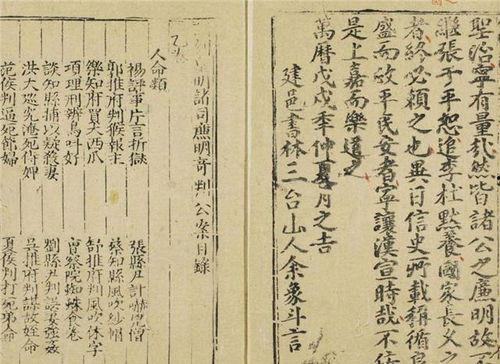 聖治寧有量哉然皆諸公之廉明故
繼張于平恕追李杜默養國家長久之
者終必賴之也異日信史所載稱循良
盛而政平民安者寧讓漢宣時哉不佞
是上嘉而樂道之
萬曆戊戌季仲夏月之吉
建邑書林三台山人余象斗言
明諸司廉明奇判公案目錄
人命類
楊評事片言折獄 張縣尹計嚇凶僧
郭推府判猴報主 蔡知縣風吹紗帽
樂知府買大西瓜 舒推府判風吹休字
項理刑辨鳥叫好 曾察院蜘蛛食卷
談知縣捕以疑殺妻 劉縣尹判誤妻強姦
洪大巡究淹死侍婢 吳推府判謀故姪命
范侯判逼死節婦 夏侯判打死弟命